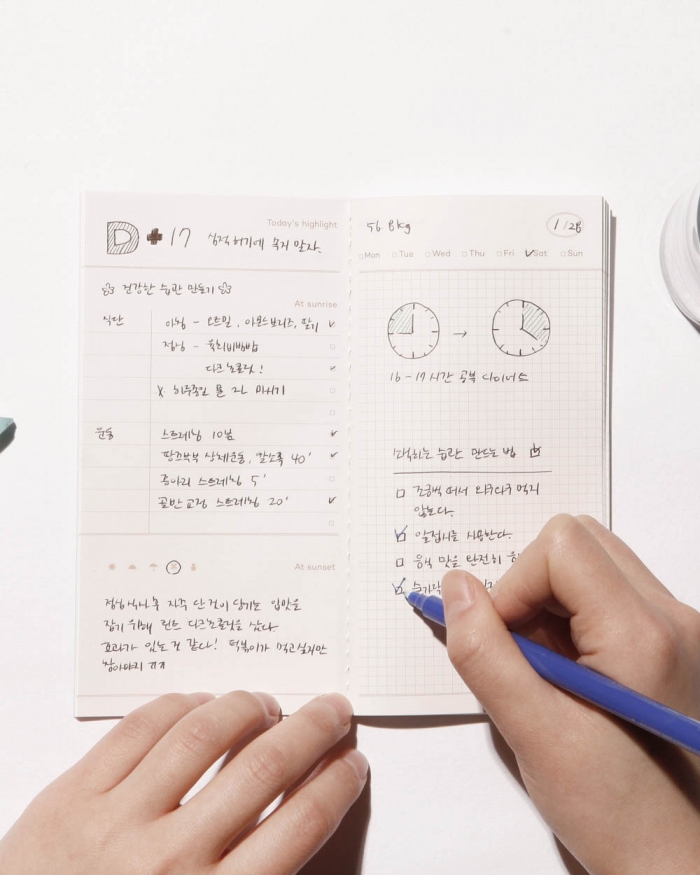 Today's highlight
D+17 심적 허기에 속지 말자.
건강한 습관 만들기
At sunrise
식단 아침 - 오트밀, 아몬드브리즈, 딸기
점심 - 육회비빔밥
다크초콜릿!
X 하루종일 물 2L 마시기
운동 스트레칭 10분
땅끄부부 상체운동, 칼소폭 40'
종아리 스트레칭 5'
골반교정 스트레칭 20'
At sunset
점심식사 후 자꾸 단 것이 당기는 입맛을
잡기 위해 린트 다크초콜릿을 샀다.
효과가 있는 것 같다! 떡볶이가 먹고싶지만
참아야지 ㅠㅠ
56.8kg 1/28
Mon Tue Wed Thu Fri Sat Sun
→
16-17시간 공복 다이어트
만드는 법
조급해 며서
않는다.
앞접시를 사용한다.
음식 맛을 완전히